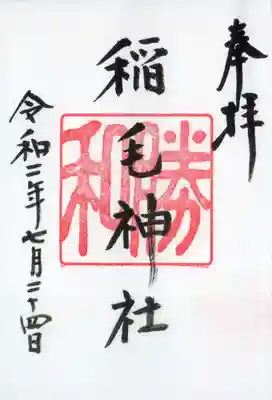 奉拝
稲毛神社
勝和
令和二年七月二十四日